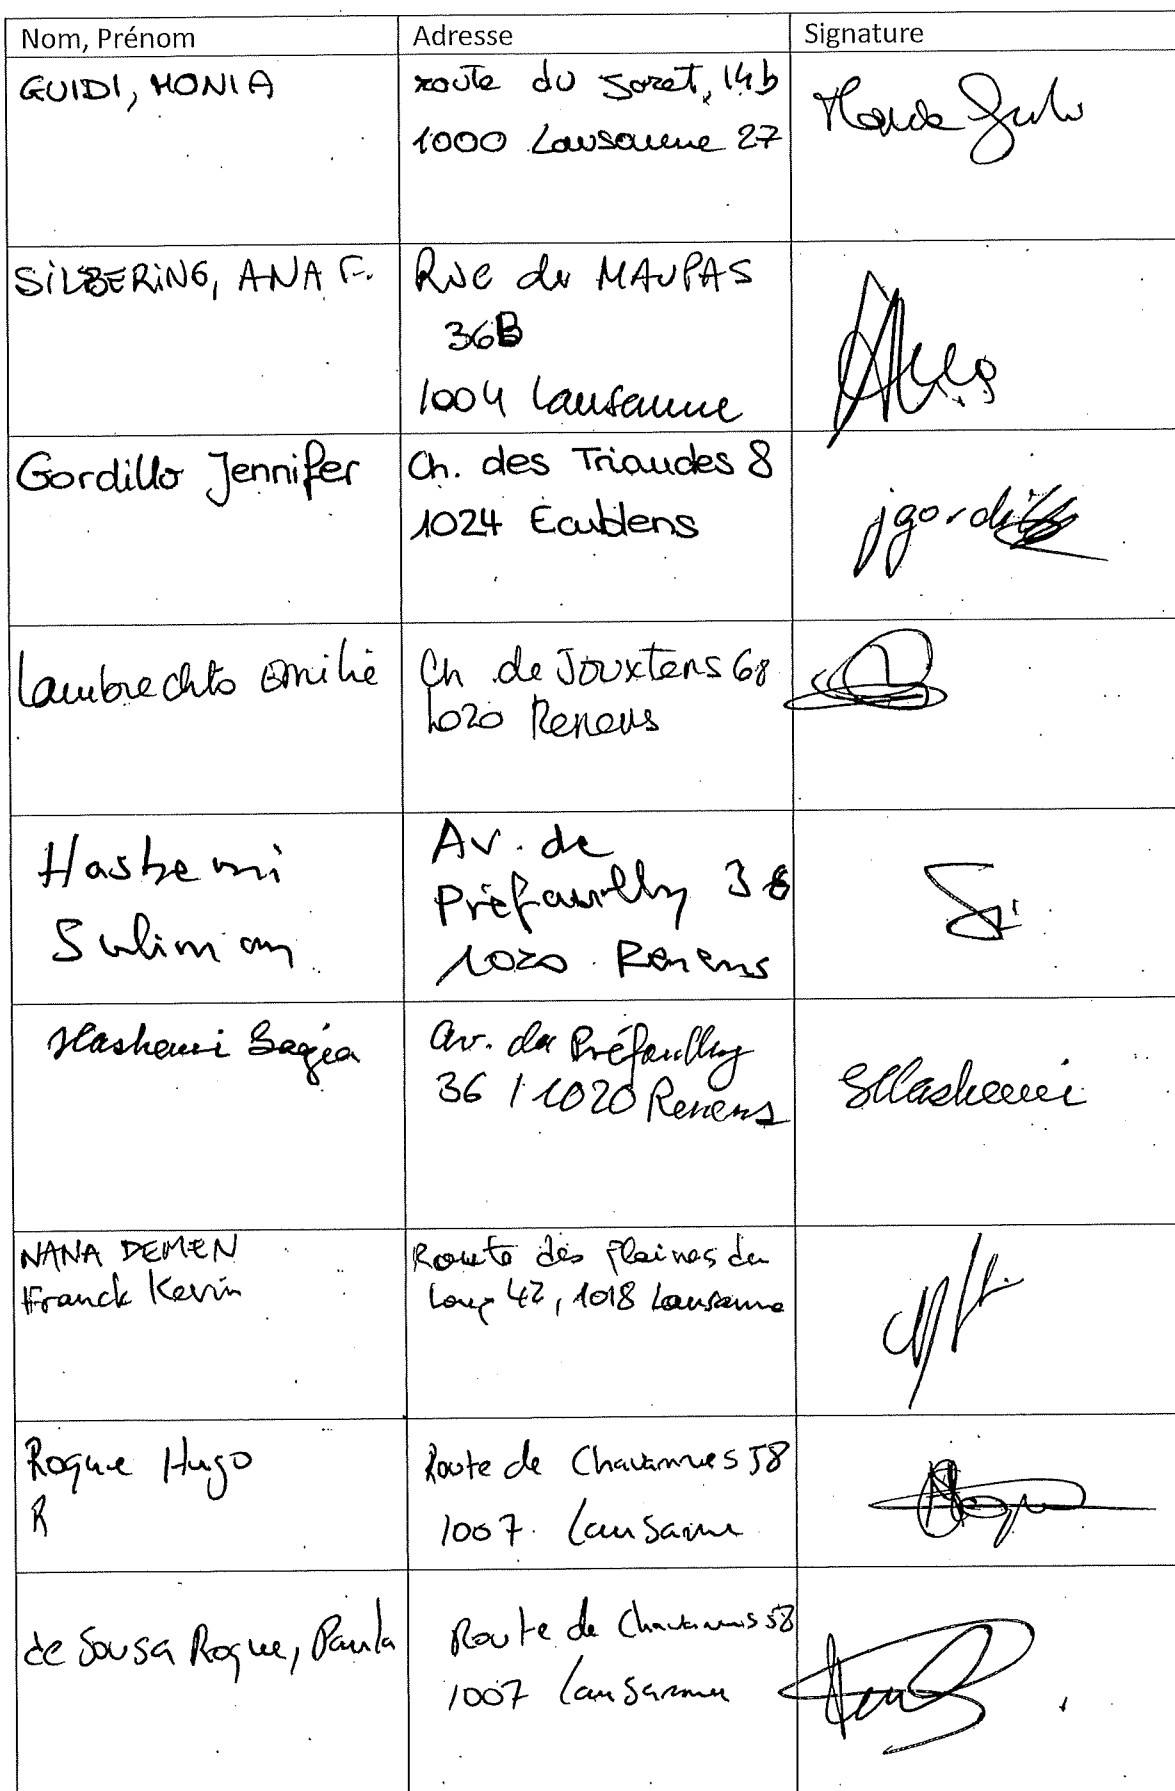 Nom, Prénom
Adresse
Signature
GUIDI, MONIA
route du Joret, 14b
1000 Lausanne 27
SILBERING, ANA F.
Rue du MAUPAS
36B
1004 Lausanne
Gordillo Jennifer
Ch. des Triaudes 8
1024 Ecublens
jgordillo
Lambrechts Emilie
Ch de Jouxtens 68
1020 Renens
Hashemi
Suliman
Av. de
Préfaully 36
1020 Renens
Hashemi
av. du Préfaully
36 / 1020 Renens
SHashemi
NANA DEMEN
Franck Kevin
Route des Plaines du
Loup 42, 1018 Lausanne
Roque Hugo
R
Route de Chavannes 58
1007 Lausanne
de Sousa Roque, Paula
Route de Chavannes 58
1007 Lausanne